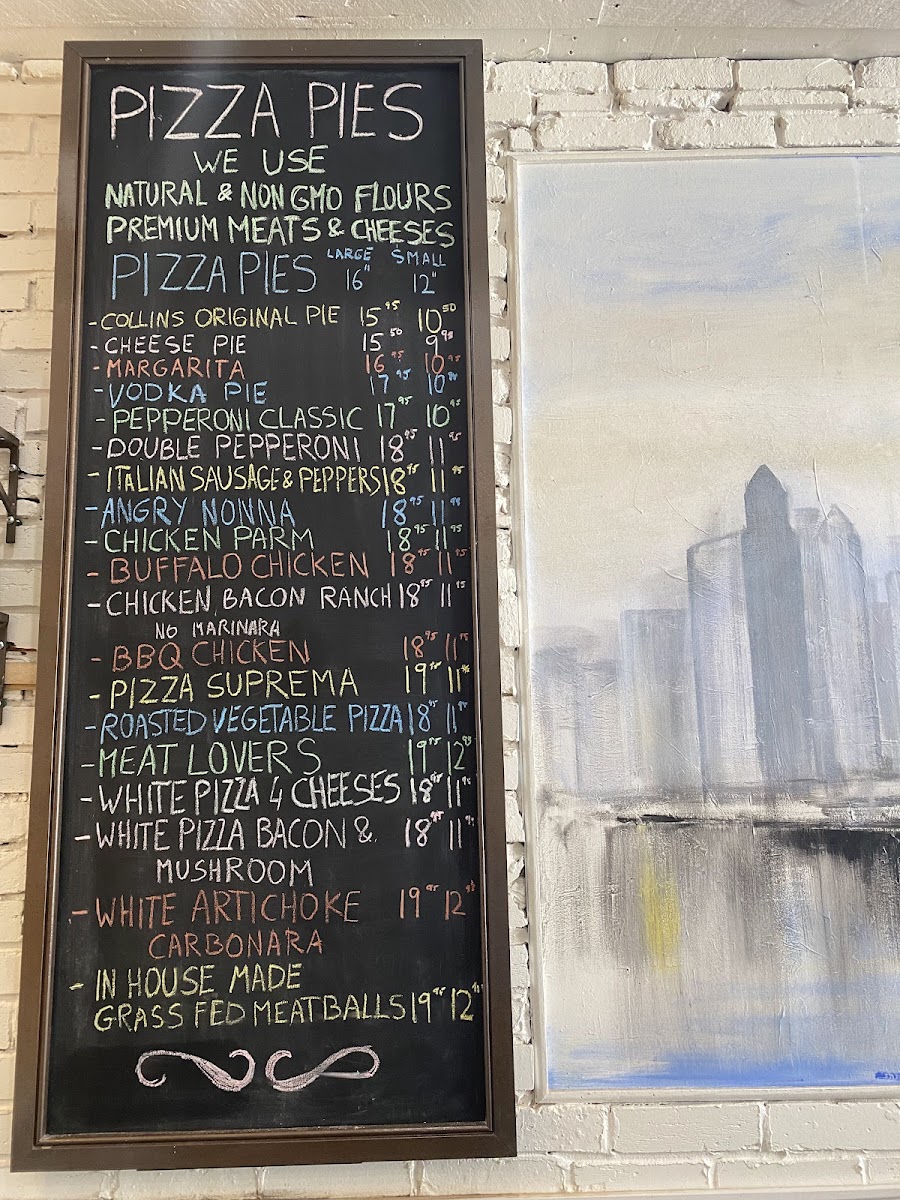 PIZZA PIES
WE USE
NATURAL & NON GMO FLOURS
PREMIUM MEATS & CHEESES
PIZZA PIES LARGE 16" SMALL 12"
- COLLINS ORIGINAL PIE 15 95 10 50
- CHEESE PIE 15 50 9 95
- MARGARITA 16 95 10 95
- VODKA PIE 17 95 10
- PEPPERONI CLASSIC 17 95 10 95
- DOUBLE PEPPERONI 18 95 11 95
- ITALIAN SAUSAGE & PEPPERS 18 95 11 95
- ANGRY NONNA 18 95 11
- CHICKEN PARM 18 95 11 95
- BUFFALO CHICKEN 18 95 11 95
- CHICKEN BACON RANCH 18 95 11 95
NO MARINARA
- BBQ CHICKEN 18 95 11 95
- PIZZA SUPREMA 19 95 11
- ROASTED VEGETABLE PIZZA 18 95 11
- MEAT LOVERS 19 95 12
- WHITE PIZZA 4 CHEESES 18 95 11
- WHITE PIZZA BACON & 18 95 11
MUSHROOM
- WHITE ARTICHOKE 19 95 12
CARBONARA
- IN HOUSE MADE
GRASS FED MEATBALLS 19 95 12